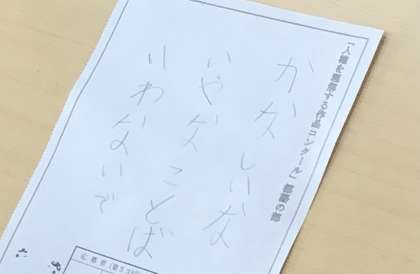 「人権を理解する作品コンクール」標語の部
かなしいな
いやなことば
いわないで